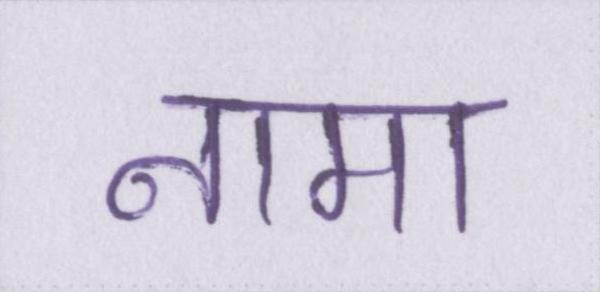 नामा